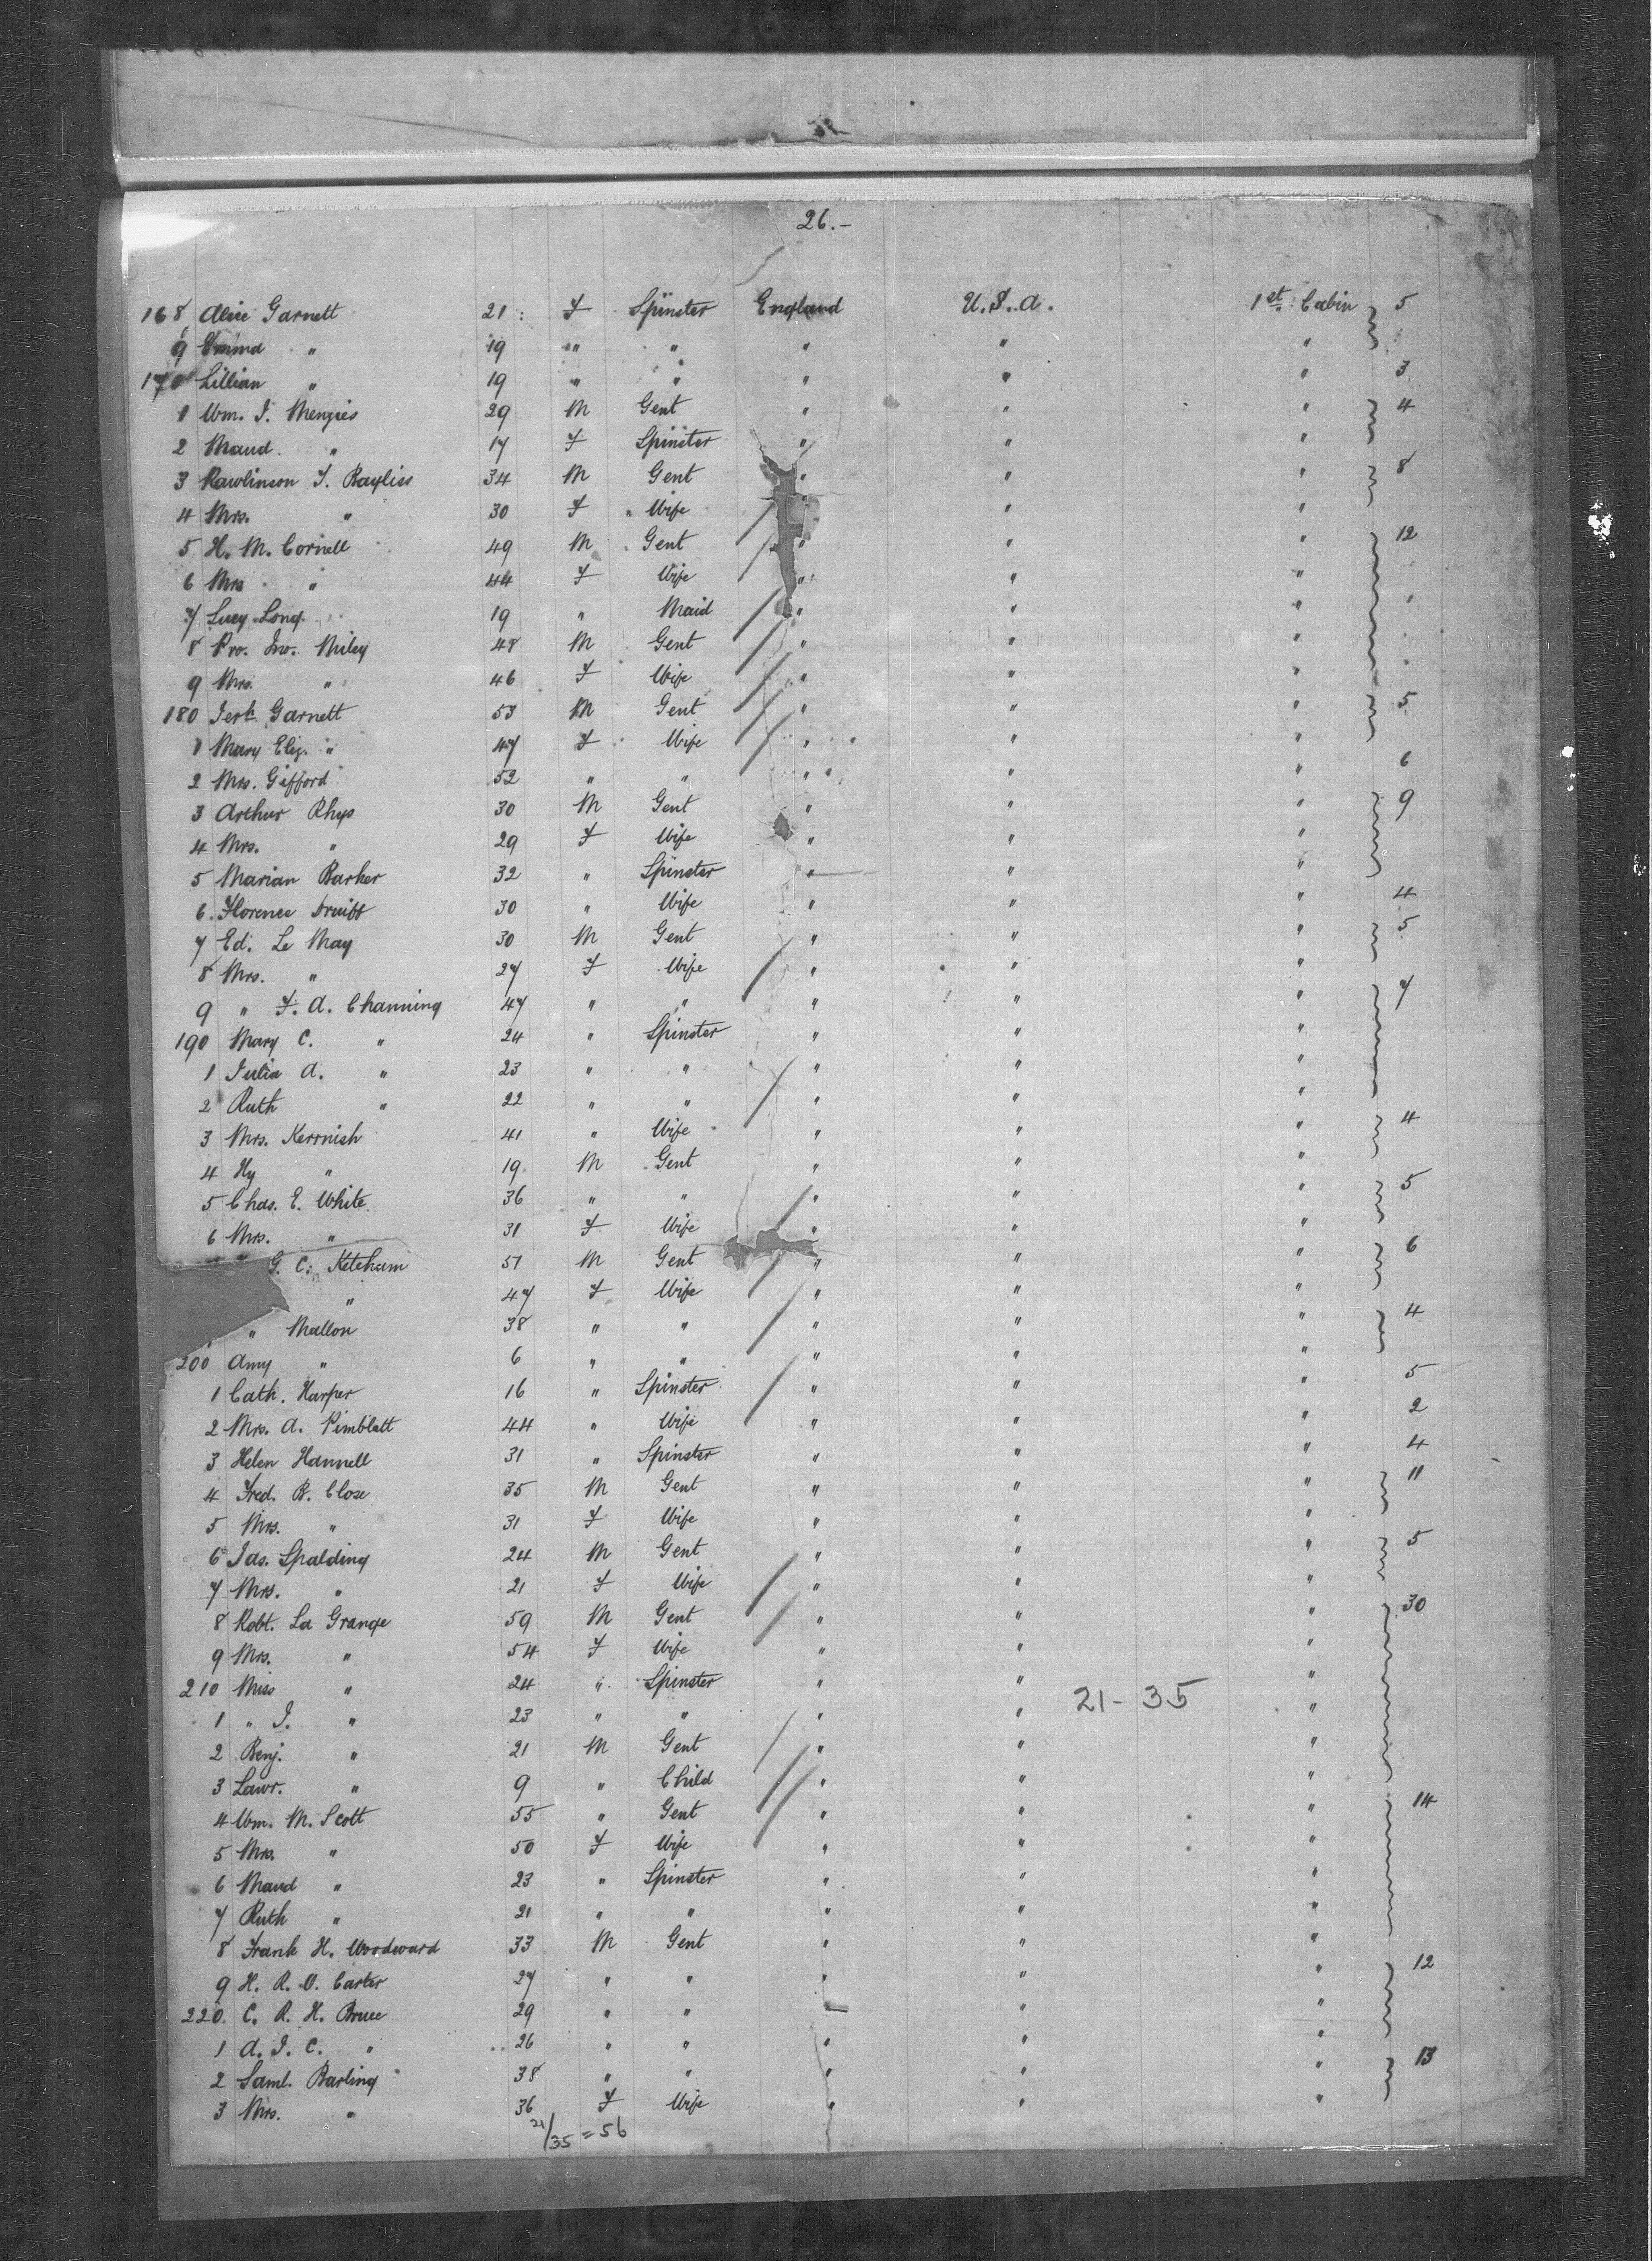 26.-
168 Alice Garnett 21 F Spinster England U.S.A. 1st Cabin 5
9 Emma " 19 " " " " "
170 Lillian " 19 " " " " " 3
1 Wm. J. Menzies 29 M Gent " " " 4
2 Maud. " 17 F Spinster " " "
3 Rawlinson T. Bayliss 34 M Gent " " " 8
4 Mrs. " 30 F Wife " "
5 H. M. Cornell 49 M Gent " " " 12
6 Mrs " 44 F Wife " " "
7 Lucy Long 19 " Maid " " "
8 Jno. Miley 48 M Gent " " "
9 Mrs. " 46 F Wife " " "
180 Garnett 53 M Gent " " " 5
1 Mary Eliz. " 47 F Wife " " "
2 Mrs. Gifford 52 " " " " " 6
3 Arthur Rhys 30 M Gent " " " 9
4 Mrs. " 29 F Wife " " "
5 Marian Barker 32 " Spinster " " "
6. Florence Druitt 30 " Wife " " " 4
7 Ed. Le May 30 M Gent " " " 5
8 Mrs. " 27 F Wife " " "
9 " F. A. Channing 47 " " " " " 7
190 Mary C. " 24 " Spinster " " "
1 Julia A. " 23 " " " " "
2 Ruth " 22 " " " " "
3 Mrs. Kerrnish 41 " Wife " " " 4
4 Hy " 19 M Gent " " "
5 Chas. E. White 36 " " " " " 5
6 Mrs. " 31 F Wife " " "
G. C. Ketchum 51 M Gent " " " 6
" 47 F Wife " " "
" Mallon 38 " " " " " 4
200 Amy " 6 " " " " "
1 Cath. Harper 16 " Spinster " " " 5
2 Mrs. A. Pimblatt 44 " Wife " " " 2
3 Helen Hannell 31 " Spinster " " " 4
4 Fred. B. Close 35 M Gent " " " 11
5 Mrs. " 31 F Wife " " "
6 Jas. Spalding 24 M Gent " " " 5
7 Mrs. " 21 F Wife " " "
8 Robt. La Grange 59 M Gent " " " 30
9 Mrs. " 54 F Wife " " "
210 Miss " 24 " Spinster " " "
1 " J. " 23 " " " " 21-35 "
2 Benj. " 21 M Gent " " "
3 Lawr. " 9 " Child " " "
4 Wm. M. Scott 55 " Gent " " " 14
5 Mrs. " 50 F Wife " " "
6 Maud " 23 " Spinster " " "
7 Ruth " 21 " " " " "
8 Frank H. Woodward 33 M Gent " " "
9 H. R. O. Carter 27 " " " " " 12
220. C. R. H. Bruce 29 " " " "
1 A. J. C. " 26 " " " " "
2 Saml. Barling 38 " " " " " 13
3 Mrs. " 36 F Wife " " "
21/35 = 56